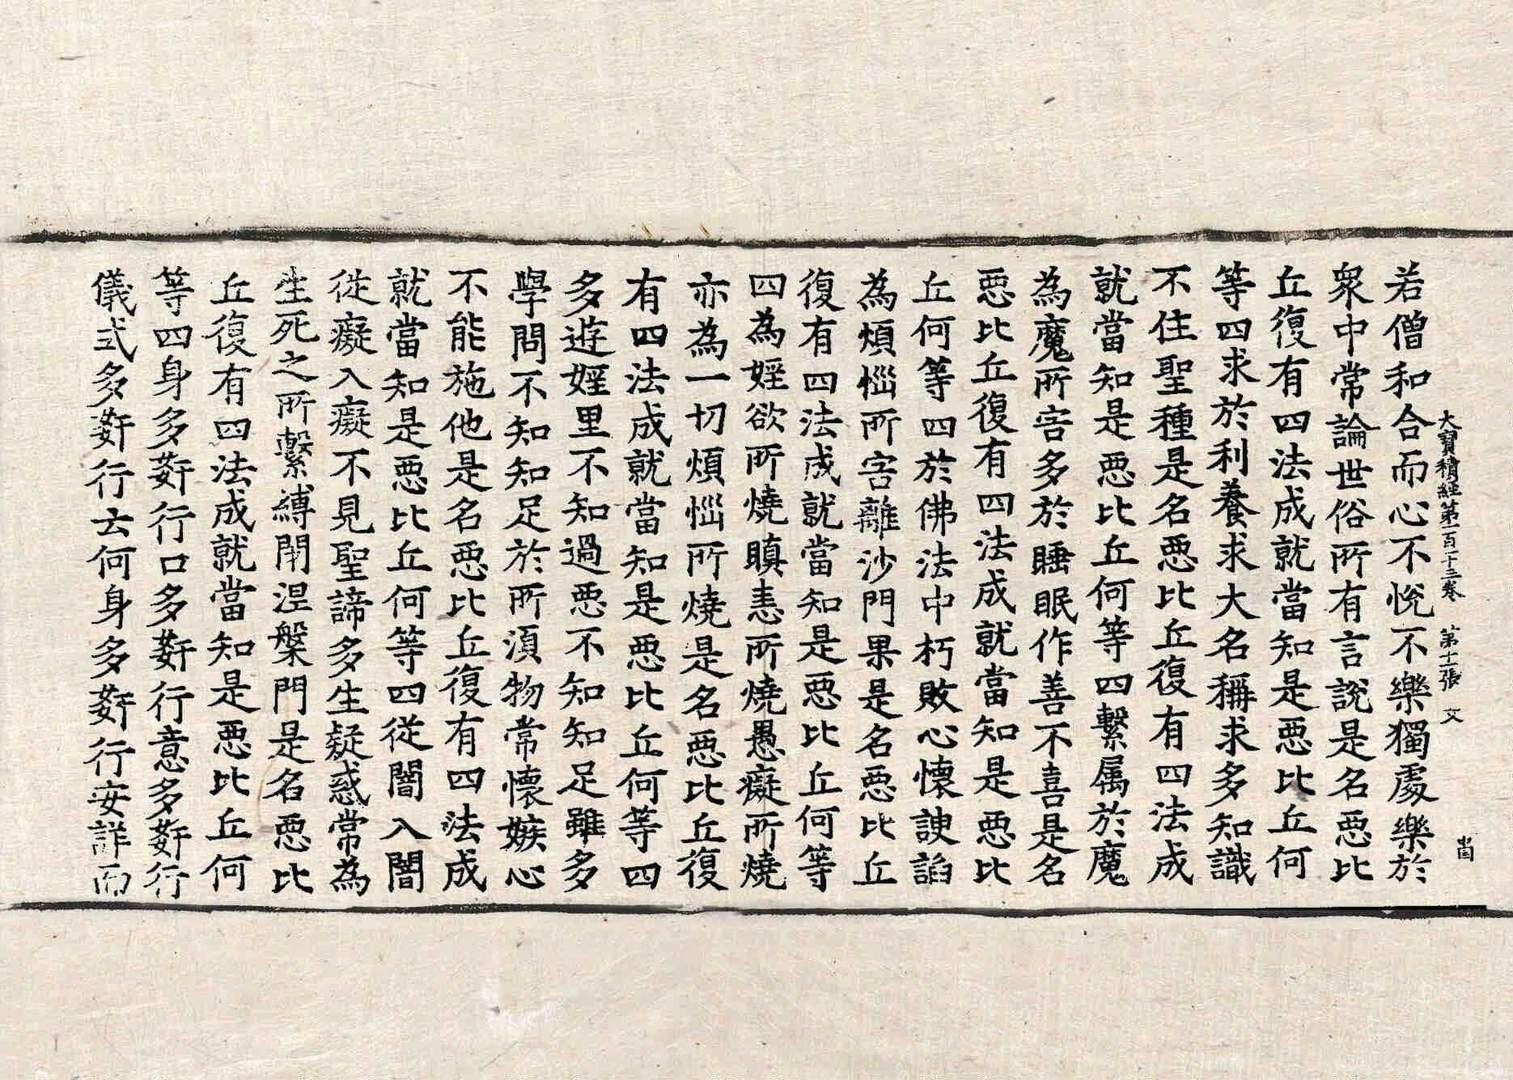 大寶積經第一百十三卷　第十一張　文
若僧和合而心不悅不樂獨處樂於
衆中常論世俗所有言說是名惡比
丘復有四法成就當知是惡比丘何
等四求於利養求大名稱求多知識
不住聖種是名惡比丘復有四法成
就當知是惡比丘何等四繫属於魔
為魔所害多於睡眠作善不喜是名
惡比丘復有四法成就當知是惡比
丘何等四於佛法中朽敗心懷諛諂
為煩惱所害離沙門果是名惡比丘
復有四法成就當知是惡比丘何等
四為婬欲所燒瞋恚所燒愚癡所燒
亦為一切煩惱所燒是名惡比丘復
有四法成就當知是惡比丘何等四
多遊婬里不知過惡不知知足雖多
學問不知知足於所須物常懷嫉心
不能施他是名惡比丘復有四法成
就當知是惡比丘何等四從闇入闇
從癡入癡不見聖諦多生疑惑常為
生死之所繫縛閇涅槃門是名惡比
丘復有四法成就當知是惡比丘何
等四身多姧行口多姧行意多姧行
儀式多姧行云何身多姧行安詳而